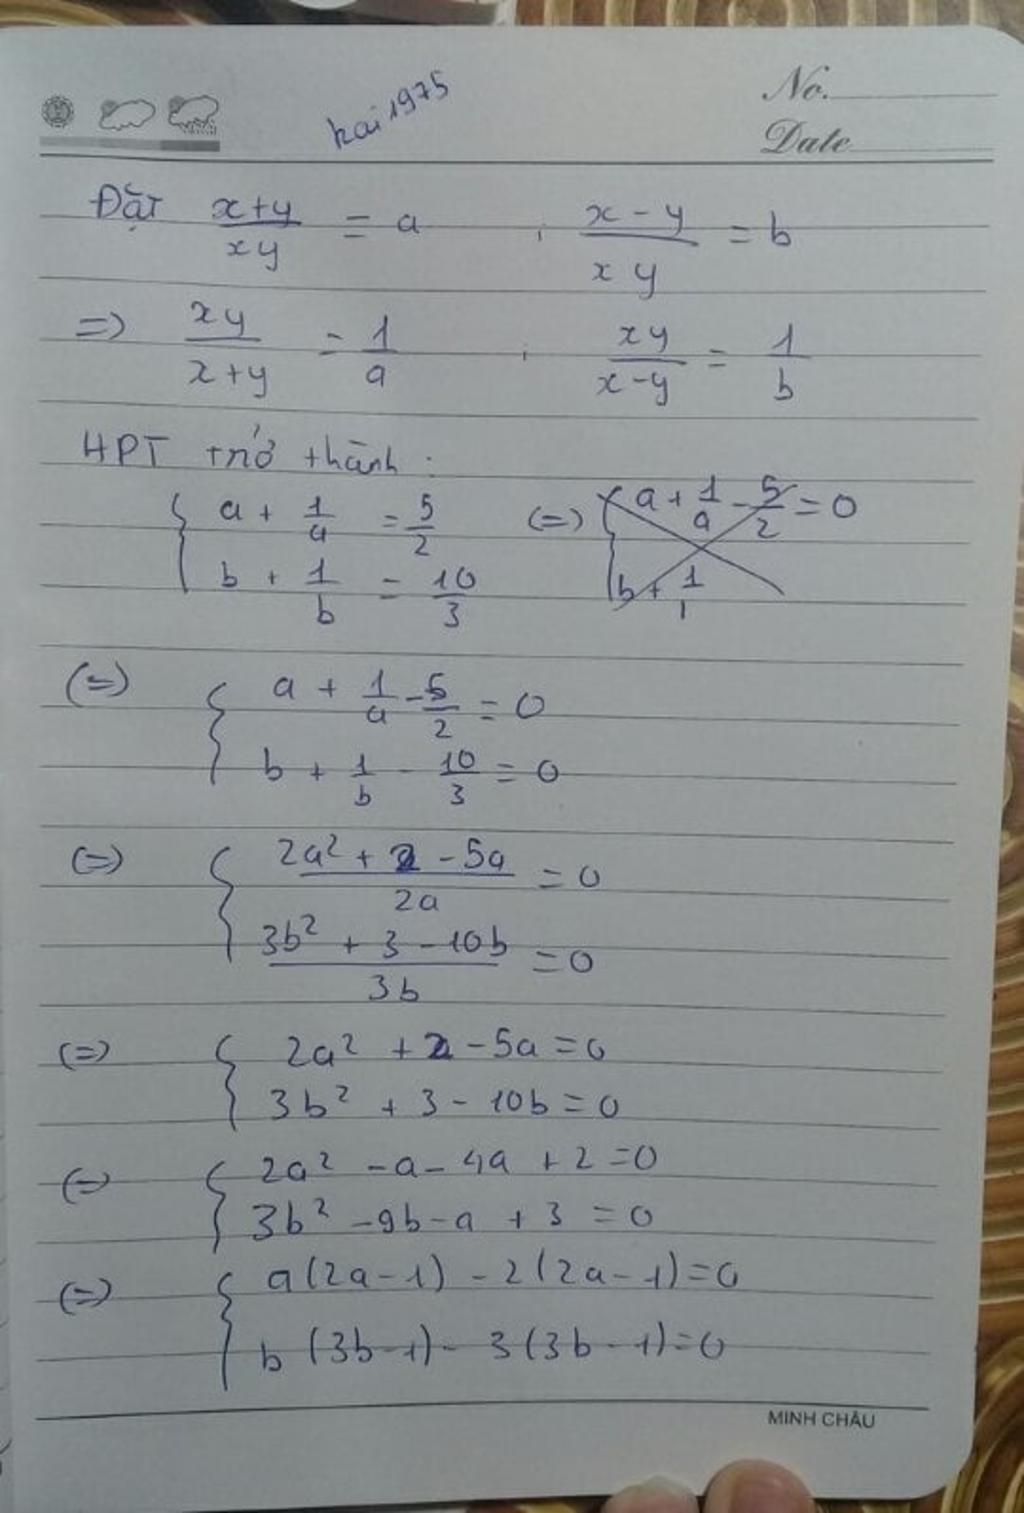 No.
kai1975
Date
Đặt x+y/xy = a , x-y/xy = b
=> xy/x+y = 1/a , xy/x-y = 1/b
HPT trở thành:
{ a + 1/a = 5/2 (=) { a + 1/a - 5/2 = 0
b + 1/b = 10/3 b + 1/
(=) { a + 1/a - 5/2 = 0
b + 1/b - 10/3 = 0
(=) { 2a² + 2 - 5a/2a = 0
3b² + 3 - 10b/3b = 0
(=) { 2a² + 2 - 5a = 0
3b² + 3 - 10b = 0
(=) { 2a² - a - 4a + 2 = 0
3b² - 9b - a + 3 = 0
(=) { a(2a-1) - 2(2a-1) = 0
b(3b-1) - 3(3b-1) = 0
MINH CHÂU